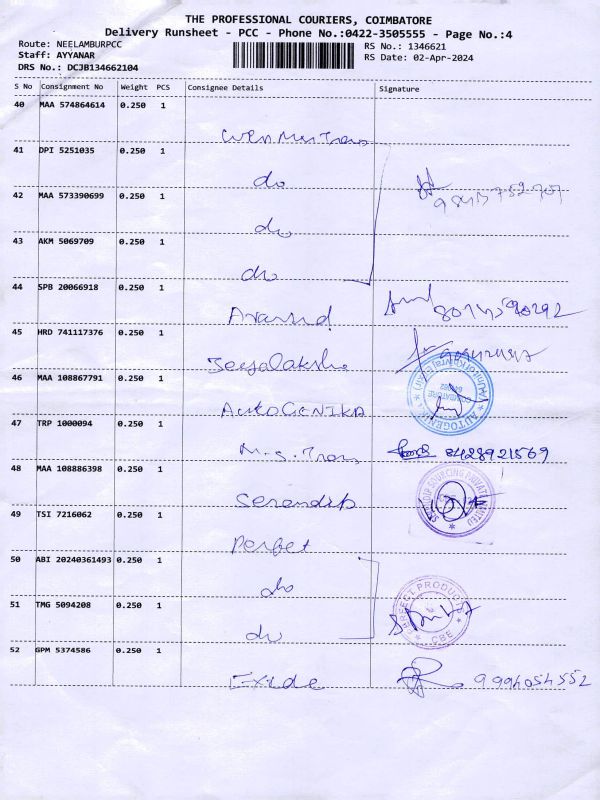 THE PROFESSIONAL COURIERS, COIMBATORE
Delivery Runsheet - PCC - Phone No.:0422-3505555 - Page No.:4
Route: NEELAMBURPCC
RS No.: 1346621
Staff: AYYANAR
RS Date: 02-Apr-2024
DRS No.: DCJB134662104
S No Consignment No Weight PCS Consignee Details Signature
40 MAA 574864614 0.250 1
41 DPI 5251035 0.250 1
do
42 MAA 573390699 0.250 1
do
43 AKM 5069709 0.250 1
do
44 SPB 20066918 0.250 1
Aravind
45 HRD 741117376 0.250 1
46 MAA 108867791 0.250 1
AUTOGENIKA
47 TRP 1000094 0.250 1
M.S. Trans 8428921569
48 MAA 108886398 0.250 1
Serendip
49 TSI 7216062 0.250 1
Perfet
50 ABI 20240361493 0.250 1
do
51 TMG 5094208 0.250 1
do
PERFECT PRODUCTS
CBE
52 GPM 5374586 0.250 1
Exide 9994054552